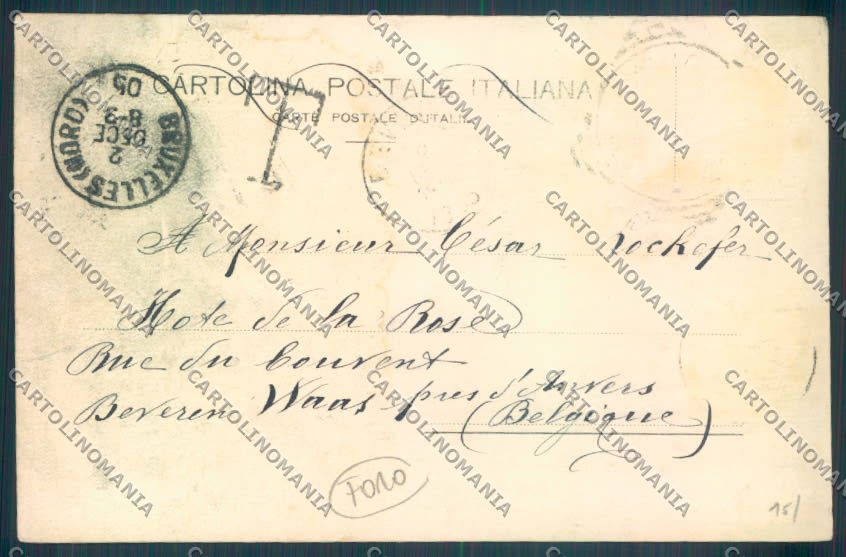 CARTOLINA POSTALE ITALIANA
CARTE POSTALE D'ITALIE
T
BRUXELLES (NORD)
2 DECE
8-
05
A Monsieur César
Hote de la Rose
Rue du Couvent
Beveren Waas pres d'Anvers
(Belgique)
FORO
15/
CARTOLINOMANIA